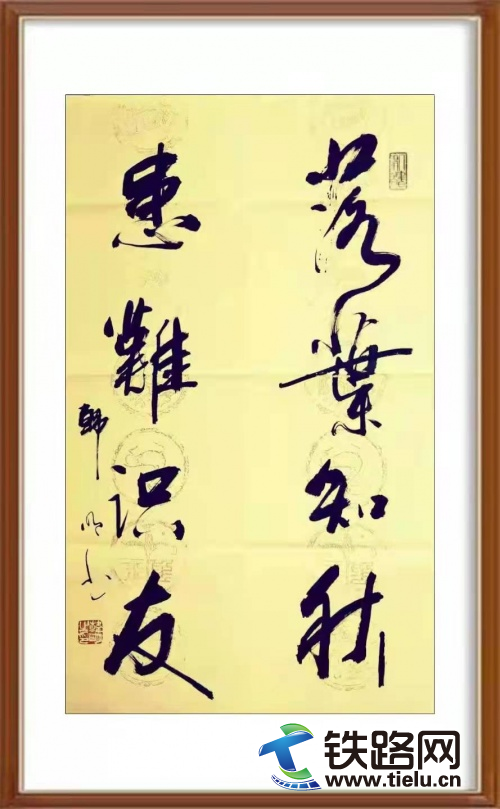 落葉知秋
患難识友
韩明书
铁路网
www.tielu.cn